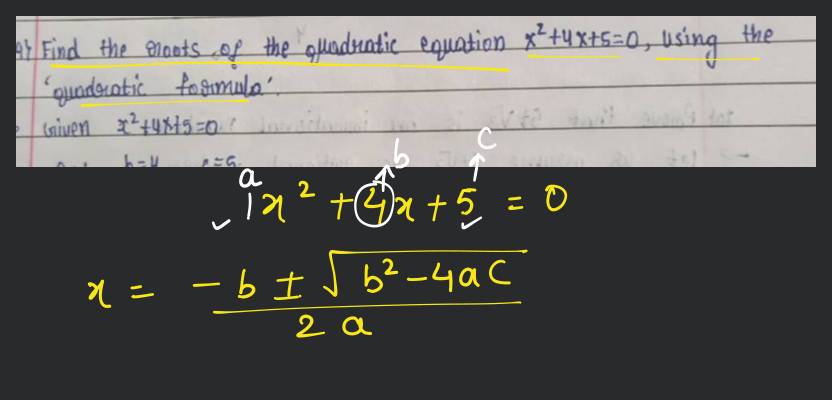 Find the roots of the quadratic equation x²+4x+5=0, using the
'quadratic formula'.
Given x²+4x+5=0.
b=4 c=5
a b c
1x² + 4x + 5 = 0
x = -b ± √b²-4ac
2a